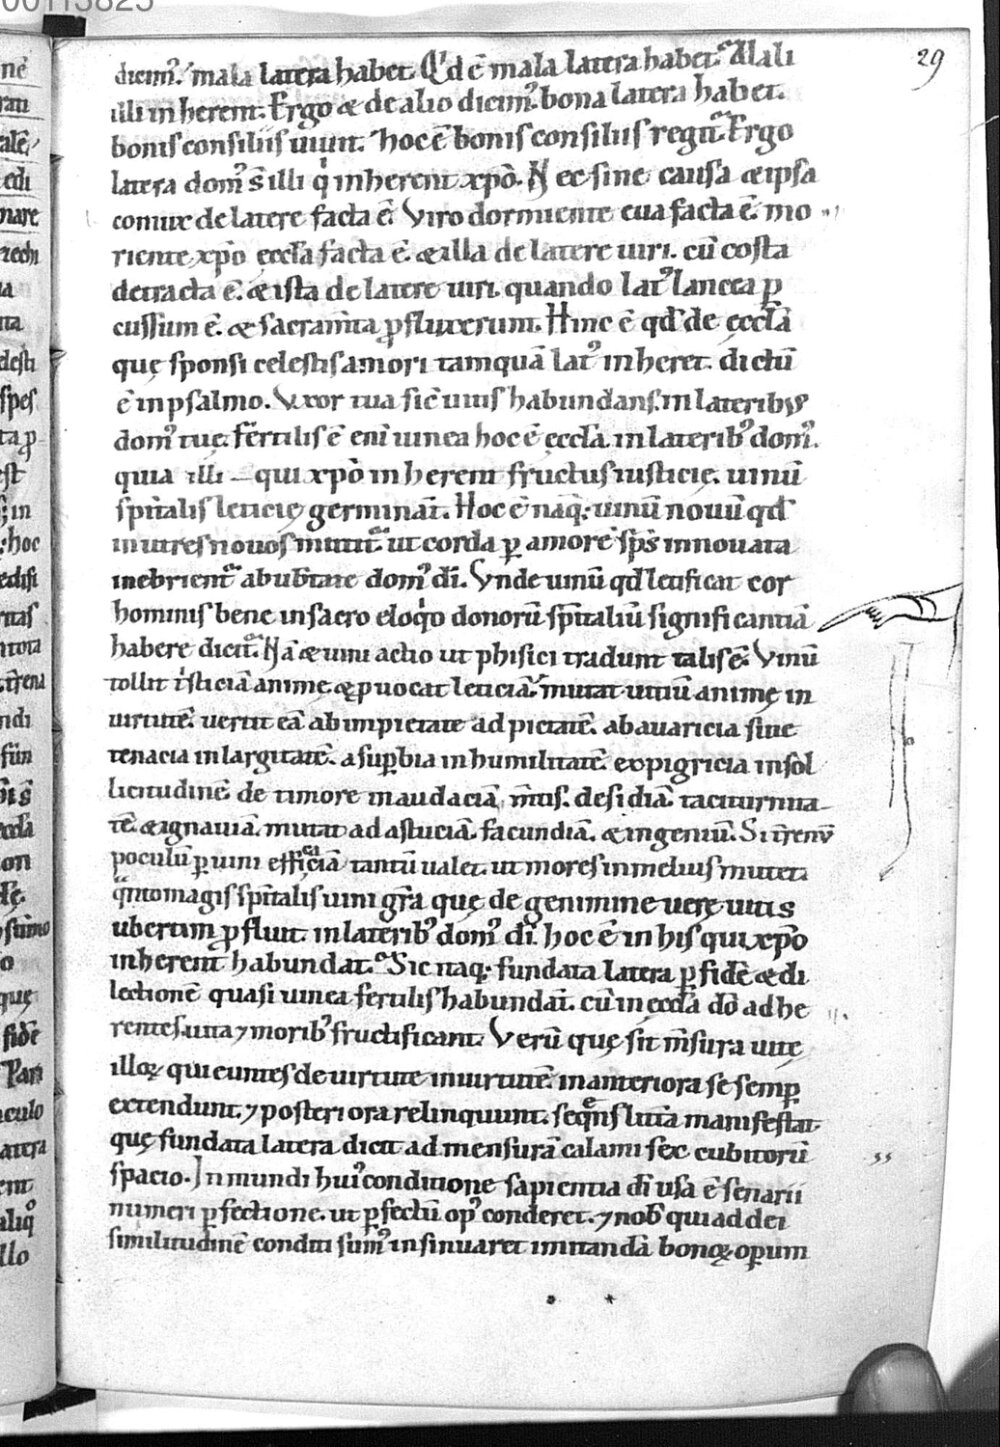 00113825
29
dicim᷒. mala latera habet. Qd ē mala latera habet. A mali
illi inherent. Ergo & de alio dicim᷒. bona latera habet.
bonis consiliis uiuit. hoc ē bonis consiliis regit᷒. Ergo
latera dom᷒ s̄ illi q̇ inherent xp̄o. N ec sine causa & ipsa
coniux de latere facta ē. Viro dormiente eua facta ē. mo
riente xp̄o ęccl̄a facta ē. & illa de latere uiri. cū costa
detracta ē. & ista de latere uiri. quando lat᷒ lancea ꝑ
cussum ē. & sacram̄ta ꝓfluxerunt. Hinc ē qd de ęccl̄a
quę sponsi celestis amori tamquā lat᷒ inheret. dictū
ē in psalmo. Vxor tua sic̄ uitis habundans. in laterib᷒
dom᷒ tuę. Fertilis ē eni uinea hoc ē ęccl̄a. in laterib᷒ dom᷒.
quia illi – qui xp̄o inherent fructus iusticię. uinū
sp̄italis leticię germinant̄. Hoc ē naq;. uinū nouū qd
in utres nouos mittit᷒. ut corda ꝑ amorē sp̄s innouata
inebrient᷒ ab ub̄tate dom᷒ dī. Vnde uinū qd letificat cor
hominis bene in sacro eloq̇o donorū sp̄italiū significantiā
habere dicit᷒. Nā & uini actio ut phisici tradunt talis ē. Vinū
tollit tristiciā animę. & ꝓuocat leticiā. mutat uitiū animę in
uirtutē. uertit eā ab impietate ad pietatē. ab auaricia siue
tenacia in largitatē. a suꝑbia in humilitatē. ex pigricia in sol
licitudinē. de timore in audaciā. m̄tis. desidiā. taciturnita
tē. & ignauiā. mutat ad astuciā. facundiā. & ingeniū. Si t̄renū
poculū ꝑ uini efficaciā tantū ualet. ut mores in melius mutet.
q̄nto magis sp̄italis uini gr̄a quę de genimine uerę uitis
ubertim ꝓfluit. in laterib᷒ dom᷒ dī. hoc ē in his qui xp̄o
inherent habundat. Sic naq; fundata latera ꝑ fidē & di
lectionē quasi uinea fertilis habundat̄. cū in ęccl̄a dō adhe
rentes. uita ⁊ morib᷒ fructificant. Verū quę sit m̄sura uitę
illoꝝ qui euntes de uirtute in uirtutē. in anteriora se semꝑ
extendunt. ⁊ posteriora relinquunt. seq̄ns litt̄a manifestat.
quę fundata latera dicit ad mensurā calami sex cubitorū
spacio. In mundi hui᷒ conditione sapientia dī usa ē senarii
numeri ꝑfectione. ut ꝑfectū op᷒ conderet. ⁊ nob̄ qui ad dei
similitudinē conditi sum᷒ insinuaret imitandā bonoꝝ oꝑum